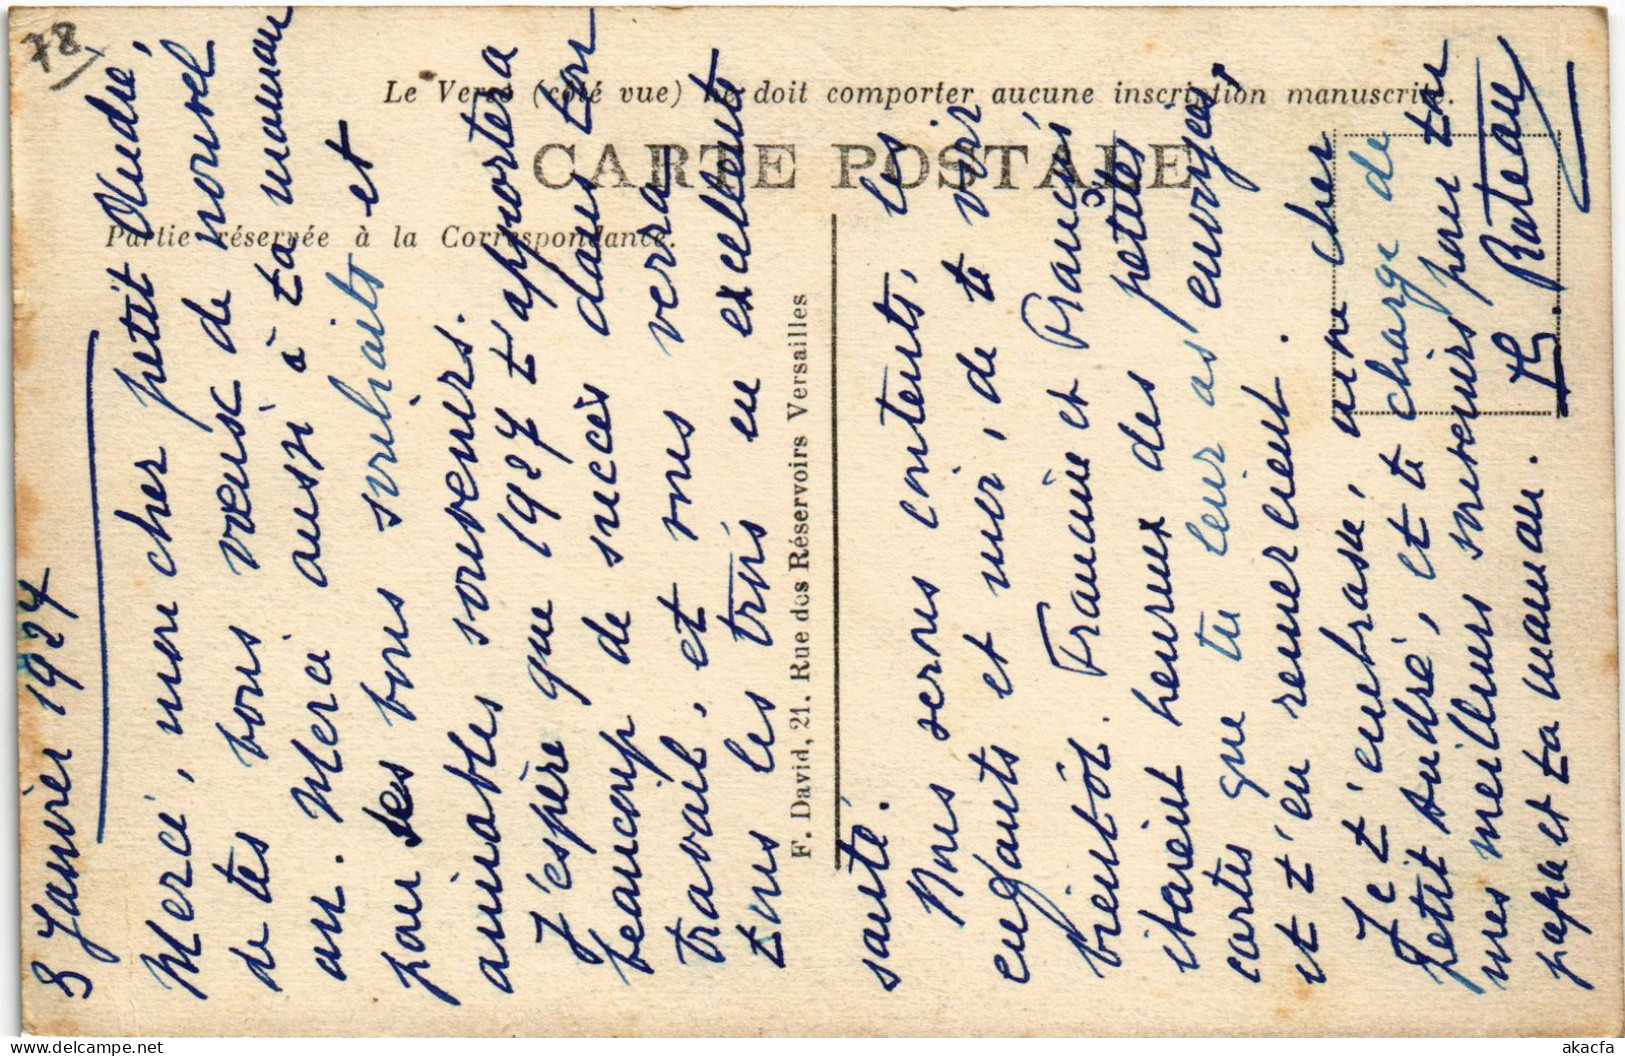 78
Le Verso (côté vue) ne doit comporter aucune inscription manuscrite.
CARTE POSTALE
Partie réservée à la Correspondance.
F. David, 21. Rue des Réservoirs Versailles
8 Janvier 1927
Merci, mon cher petit André,
de tes bons vœux de nouvel
an. Merci aussi à ta maman
pour ses bons souhaits et
aimables souvenirs.
J'espère que 1927 t'apportera
beaucoup de succès dans ton
travail, et nous verra
tous les trois en excellente
santé.
Nous serons contents, les
enfants et moi, de te voir
bientôt. Francine et Francis
étaient heureux des petites
cartes que tu leur as envoyées
et t'en remercient.
Je t'embrasse, mon cher
petit André, et te charge de
mes meilleurs souvenirs pour ton
papa et ta maman.
Rateau
akacfa